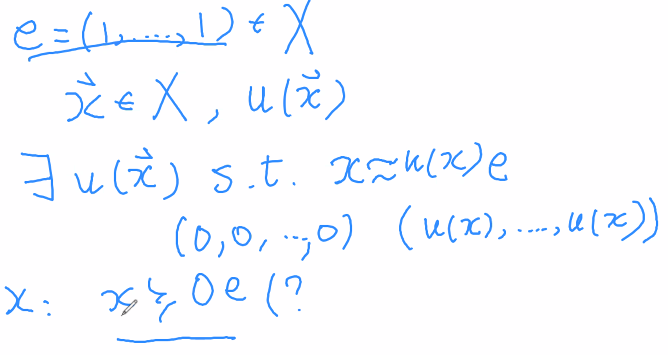 e = (1, ..., 1) ∈ X
x⃗ ∈ X, u(x⃗)
∃ u(x⃗) s.t. x ≈ u(x)e
(0, 0, ..., 0) (u(x), ..., u(x))
x: x ≿ 0e (?